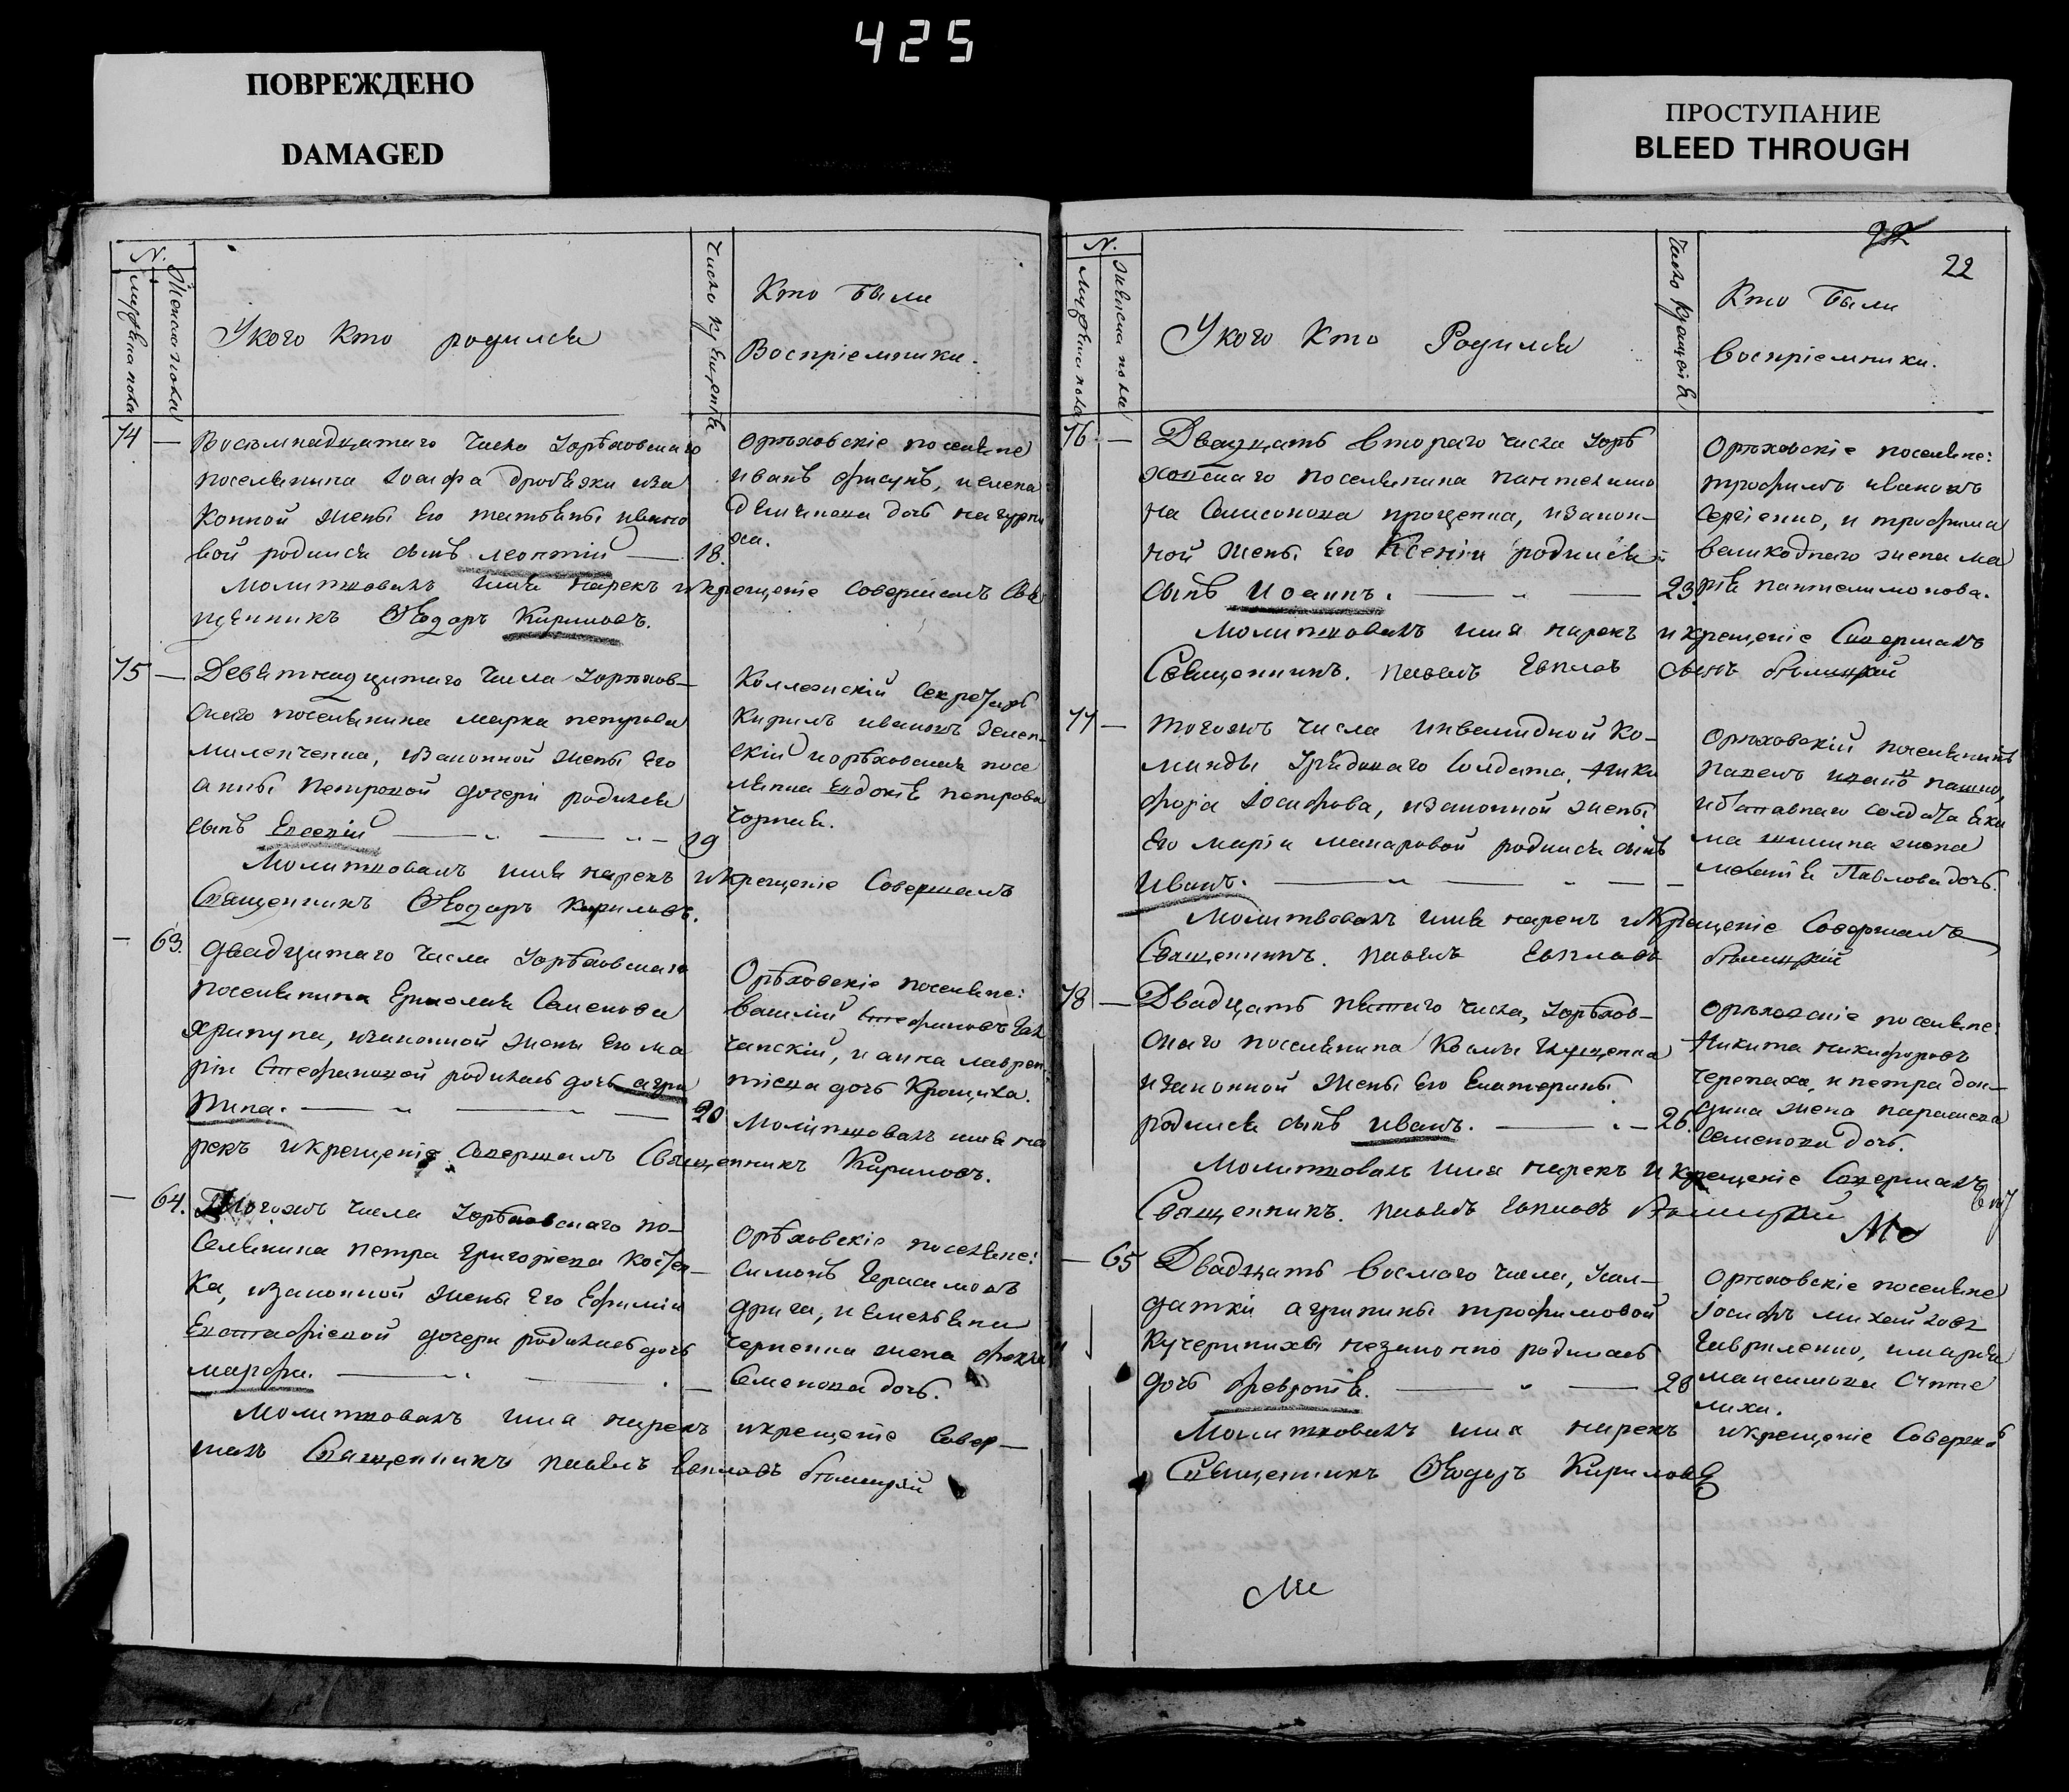 425
ПОВРЕЖДЕНО
DAMAGED
ПРОСТУПАНИЕ
BLEED THROUGH
N.
мужеска пола
Женска пола
Укого кто родился
Число крещения
Кто были
Воспріемники.
74 —
Восьмнадцатаго числа Уорѣховскаго
поселянина Іоасафа дробязки иза
конной жены его татьяны ивано
вой родился сынъ леонтій — 18.
Орѣховскіе поселяне
иванъ фисунъ, и елена
молитвовалъ имя нарекъ и крещеніе совершалъ Свя
щенникъ Ѳеодоръ Кириловъ.
75 —
Девятнадцатаго числа Уорѣхов-
скаго поселянина марка петрова
миленченка, изаконной жены его
анны Петровой дочери родился
сынъ Евсевій — 19
Коллежскій Секретарь
Кирилъ ивановъ Зелен-
скій иорѣховская посе
лянка Евдокія петрова
чорная.
Молитвовалъ имя нарекъ и крещеніе Совершалъ
Священникъ Ѳеодоръ Кириловъ.
— 63.
двадцатаго числа Уорѣховскаго
поселянина Ермолая Семенова
хрипуна, изаконной жены его ма
ріи Стефановой родилась дочь агри
пина. — 20
Орѣховскіе поселяне:
василій Стефановъ
чанскій, и анна лаврен
тіева дочь
Молитвовалъ имя на
рекъ и крещеніе Совершалъ Священникъ Кириловъ.
— 64.
Тогожъ числа Уорѣховскаго по-
селянина петра григоріева Костен-
ка, изаконной жены его Ефиміи
Евстафіевой дочери родилась дочь
марфа. —
Орѣховскіе поселяне:
Симонъ Герасимовъ
дрига, и емельяна
черненка жена фекла
Семенова дочь.
Молитвовалъ имя нарекъ и крещеніе Совер-
шалъ Священникъ павелъ Евпловъ
22
N.
Мужеска пола
Женска пола
Укого Кто Родился
Число крещенія
Кто были
воспріемники.
76 —
Двадцать втораго числа Уорѣ
ховскаго поселянина пантелимо
на Самсонова проценка, изакон-
ной жены его Ксеніи родился
сынъ Иоаннъ. — 23.
Орѣховскіе поселяне:
трофимъ ивановъ
Сергіенко, и трофима
великоднаго жена ма
рія пантелимонова.
Молитвовалъ имя нарекъ и крещеніе Совершалъ
Священникъ. павелъ Евплов
77 —
тогожъ числа инвалидной Ко-
манды Уряднаго Солдата, Ники
фора Іосифова, изаконной жены
Его маріи макаровой родился сынъ
Иванъ. —
Орѣховскій поселянинъ
павелъ
и отставнаго солдата Яки
ма жена
Павлова дочь.
Молитвовалъ имя нарекъ и Крещеніе Совершалъ
Священникъ. павелъ Евпловъ
78 —
Двадцать пятаго числа, Уорѣхов-
скаго поселянина Козмы
изаконной жены его Екатерины
родился сынъ иванъ. — 26.
Орѣховскіе поселяне:
Никита никифоровъ
черепаха, и петра дон-
цика жена параскева
Семенова дочь.
Молитвовалъ имя нарекъ и крещеніе Совершалъ
Священникъ. павелъ Евпловъ
— 65
Двадцать восмаго числа, Усал-
датки агрипины трофимовой
кучерихи незаконно родилась
дочь февронія. — 28
Орѣховскіе поселяне
Іосифъ михайловъ
Гавриленко, имарія
максимова
Молитвовалъ имя нарекъ и крещеніе Совершалъ
Священникъ Ѳеодоръ Кириловъ